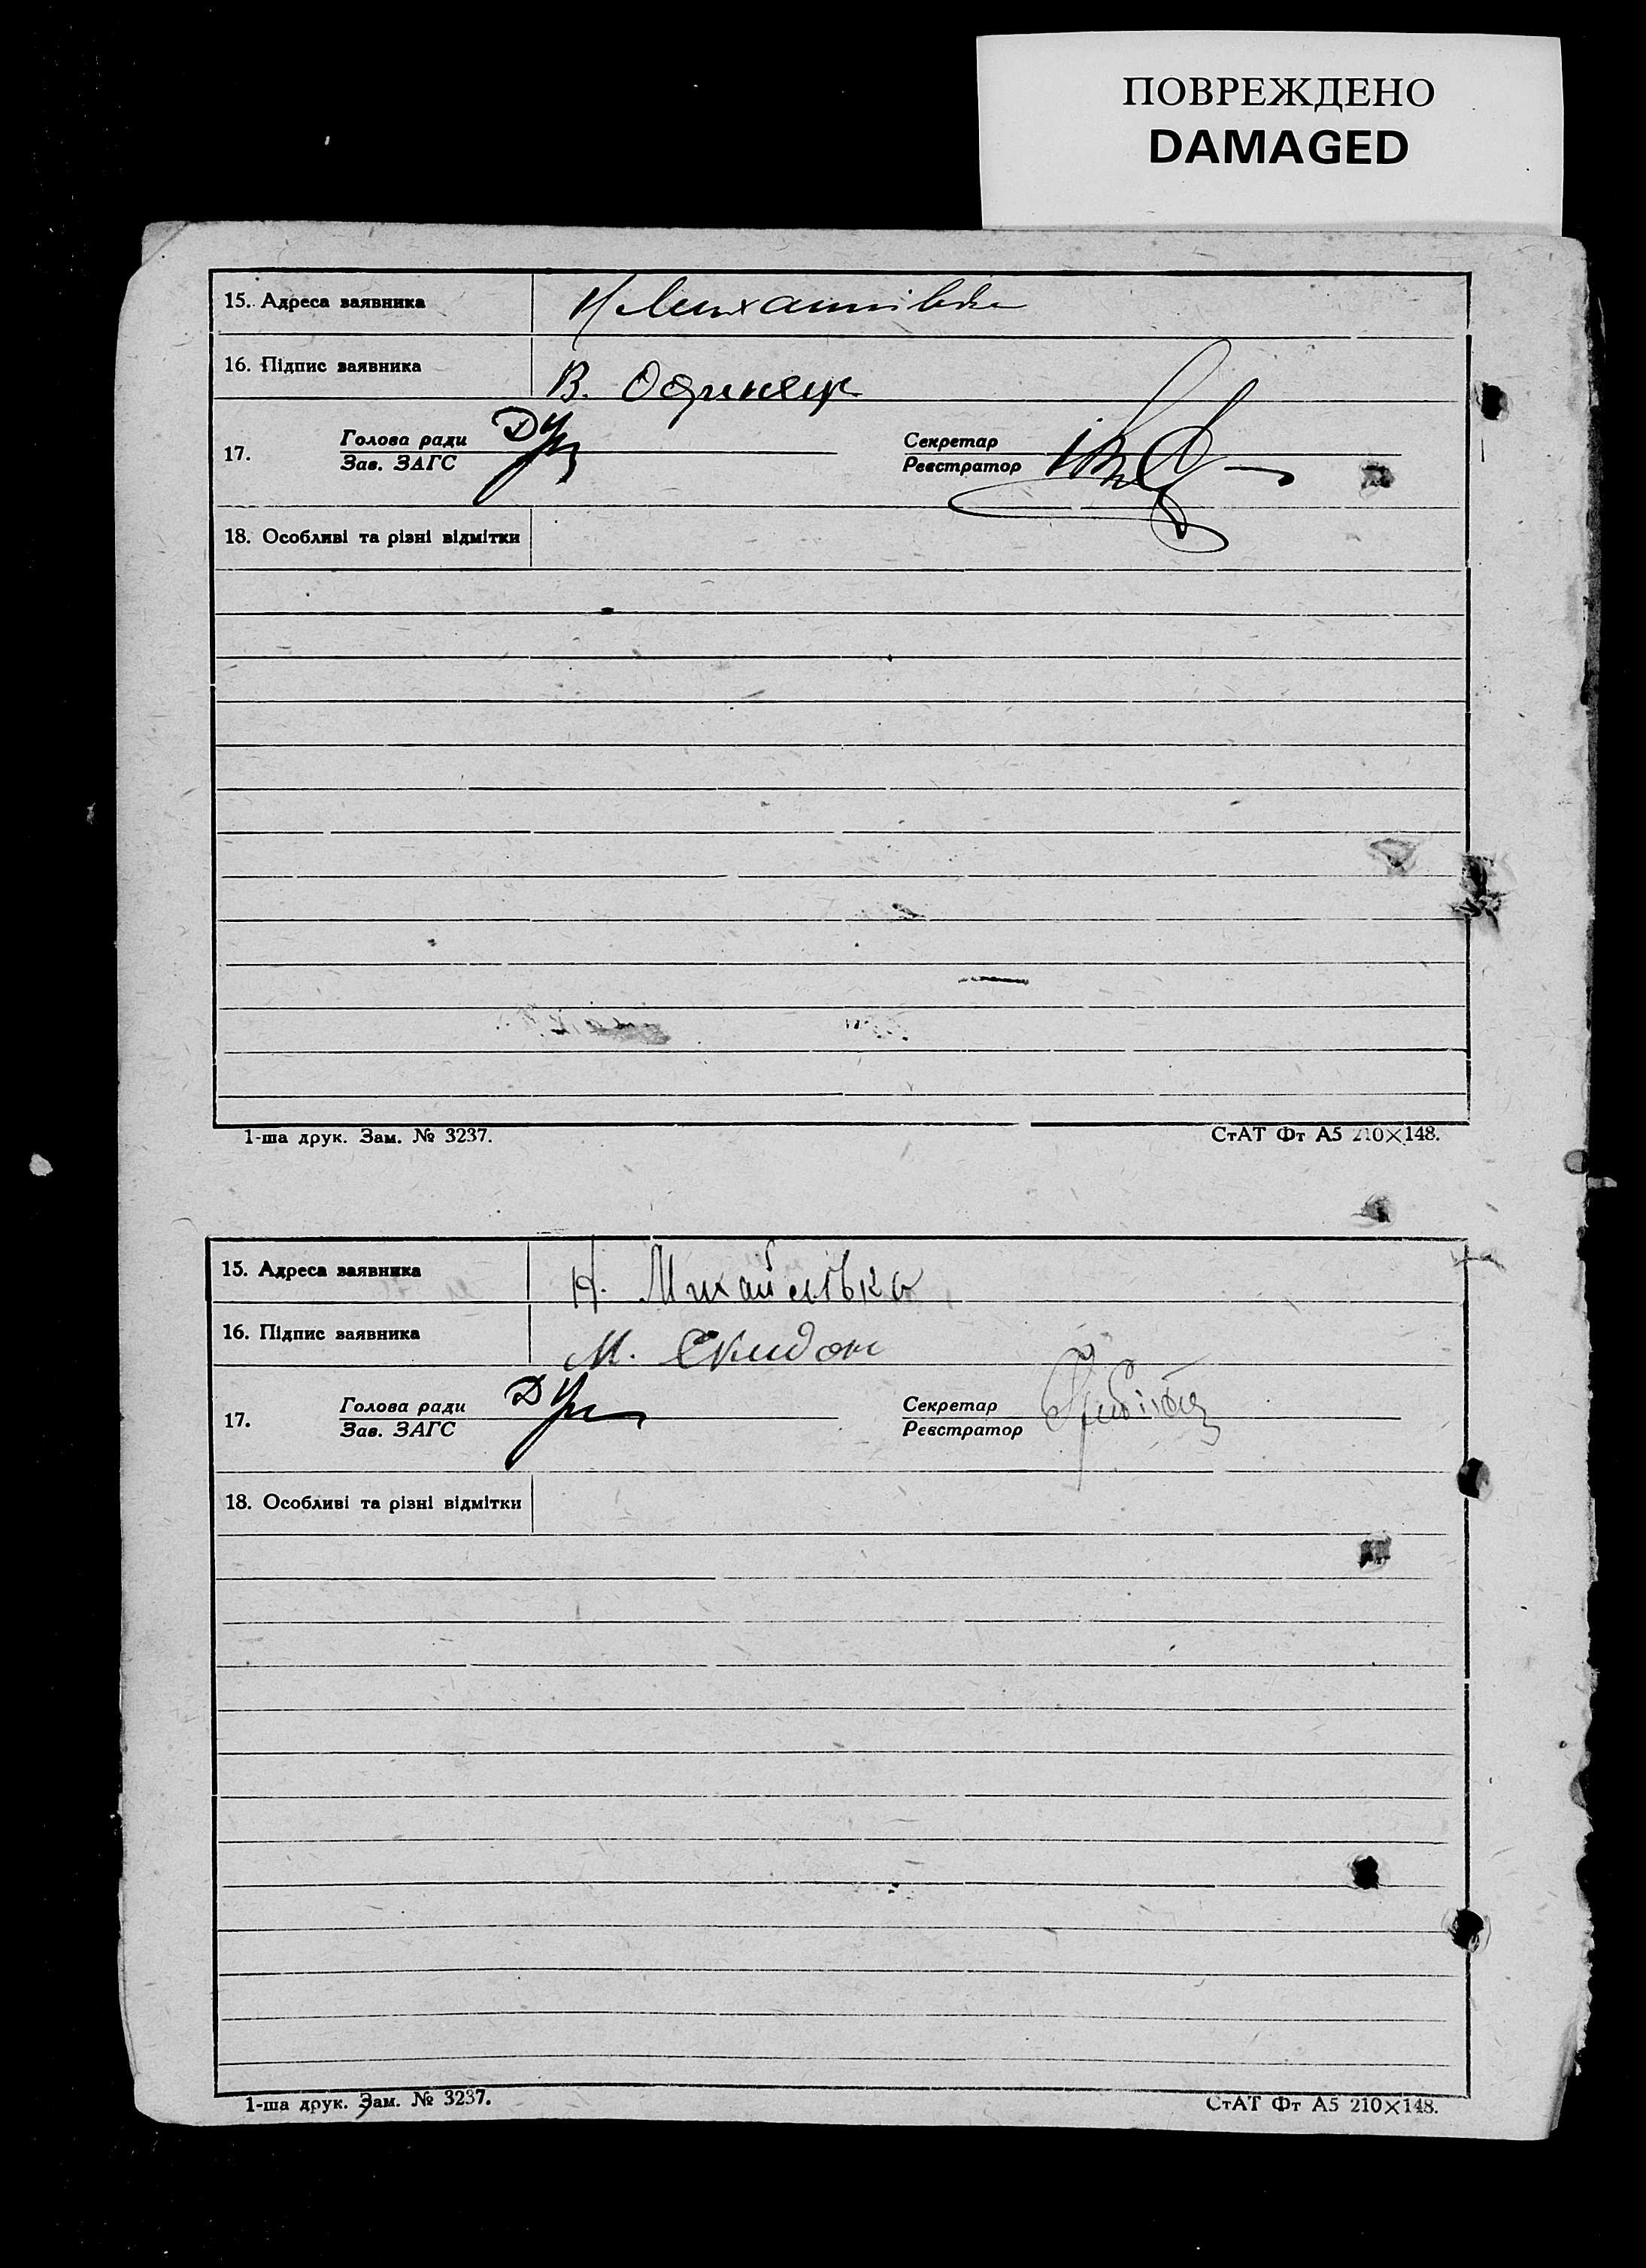 ПОВРЕЖДЕНО
DAMAGED
15. Адреса заявника Н Михайлівка
16. Підпис заявника В. Одинец
17. Голова ради Секретар
Зав. ЗАГС Реєстратор
18. Особливі та різні відмітки
1-ша друк. Зам. № 3237. СтАТ Фт А5 210×148.
15. Адреса заявника Н. Михайлівка
16. Підпис заявника М. Скидан
17. Голова ради Секретар
Зав. ЗАГС Реєстратор
18. Особливі та різні відмітки
1-ша друк. Зам. № 3237. СтАТ Фт А5 210×148.